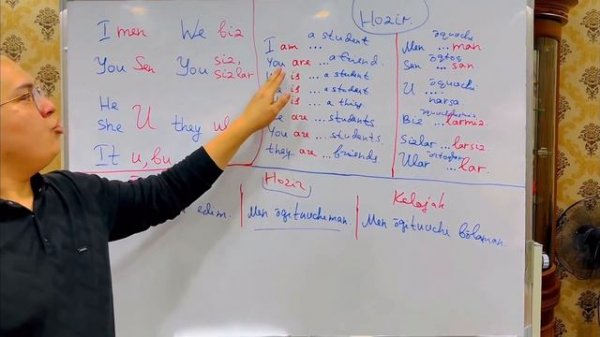 I men We biz
You Sen You siz, sizlar
He
she U they
It u, bu
Hozir
a student
I am ...
You are ... a friend.
is ... a student
is ... a student
is ... a thing
are ... students
You are ... students.
they are ... friends
Men ... man
San ... san
U ....
narsa
Biz ... larmiz
Sizlar ... larsiz
Ular ... lar.
edim.
Hozir
Men ōgituvchiman.
Kelajak
Men ōgituvchi bōlaman.